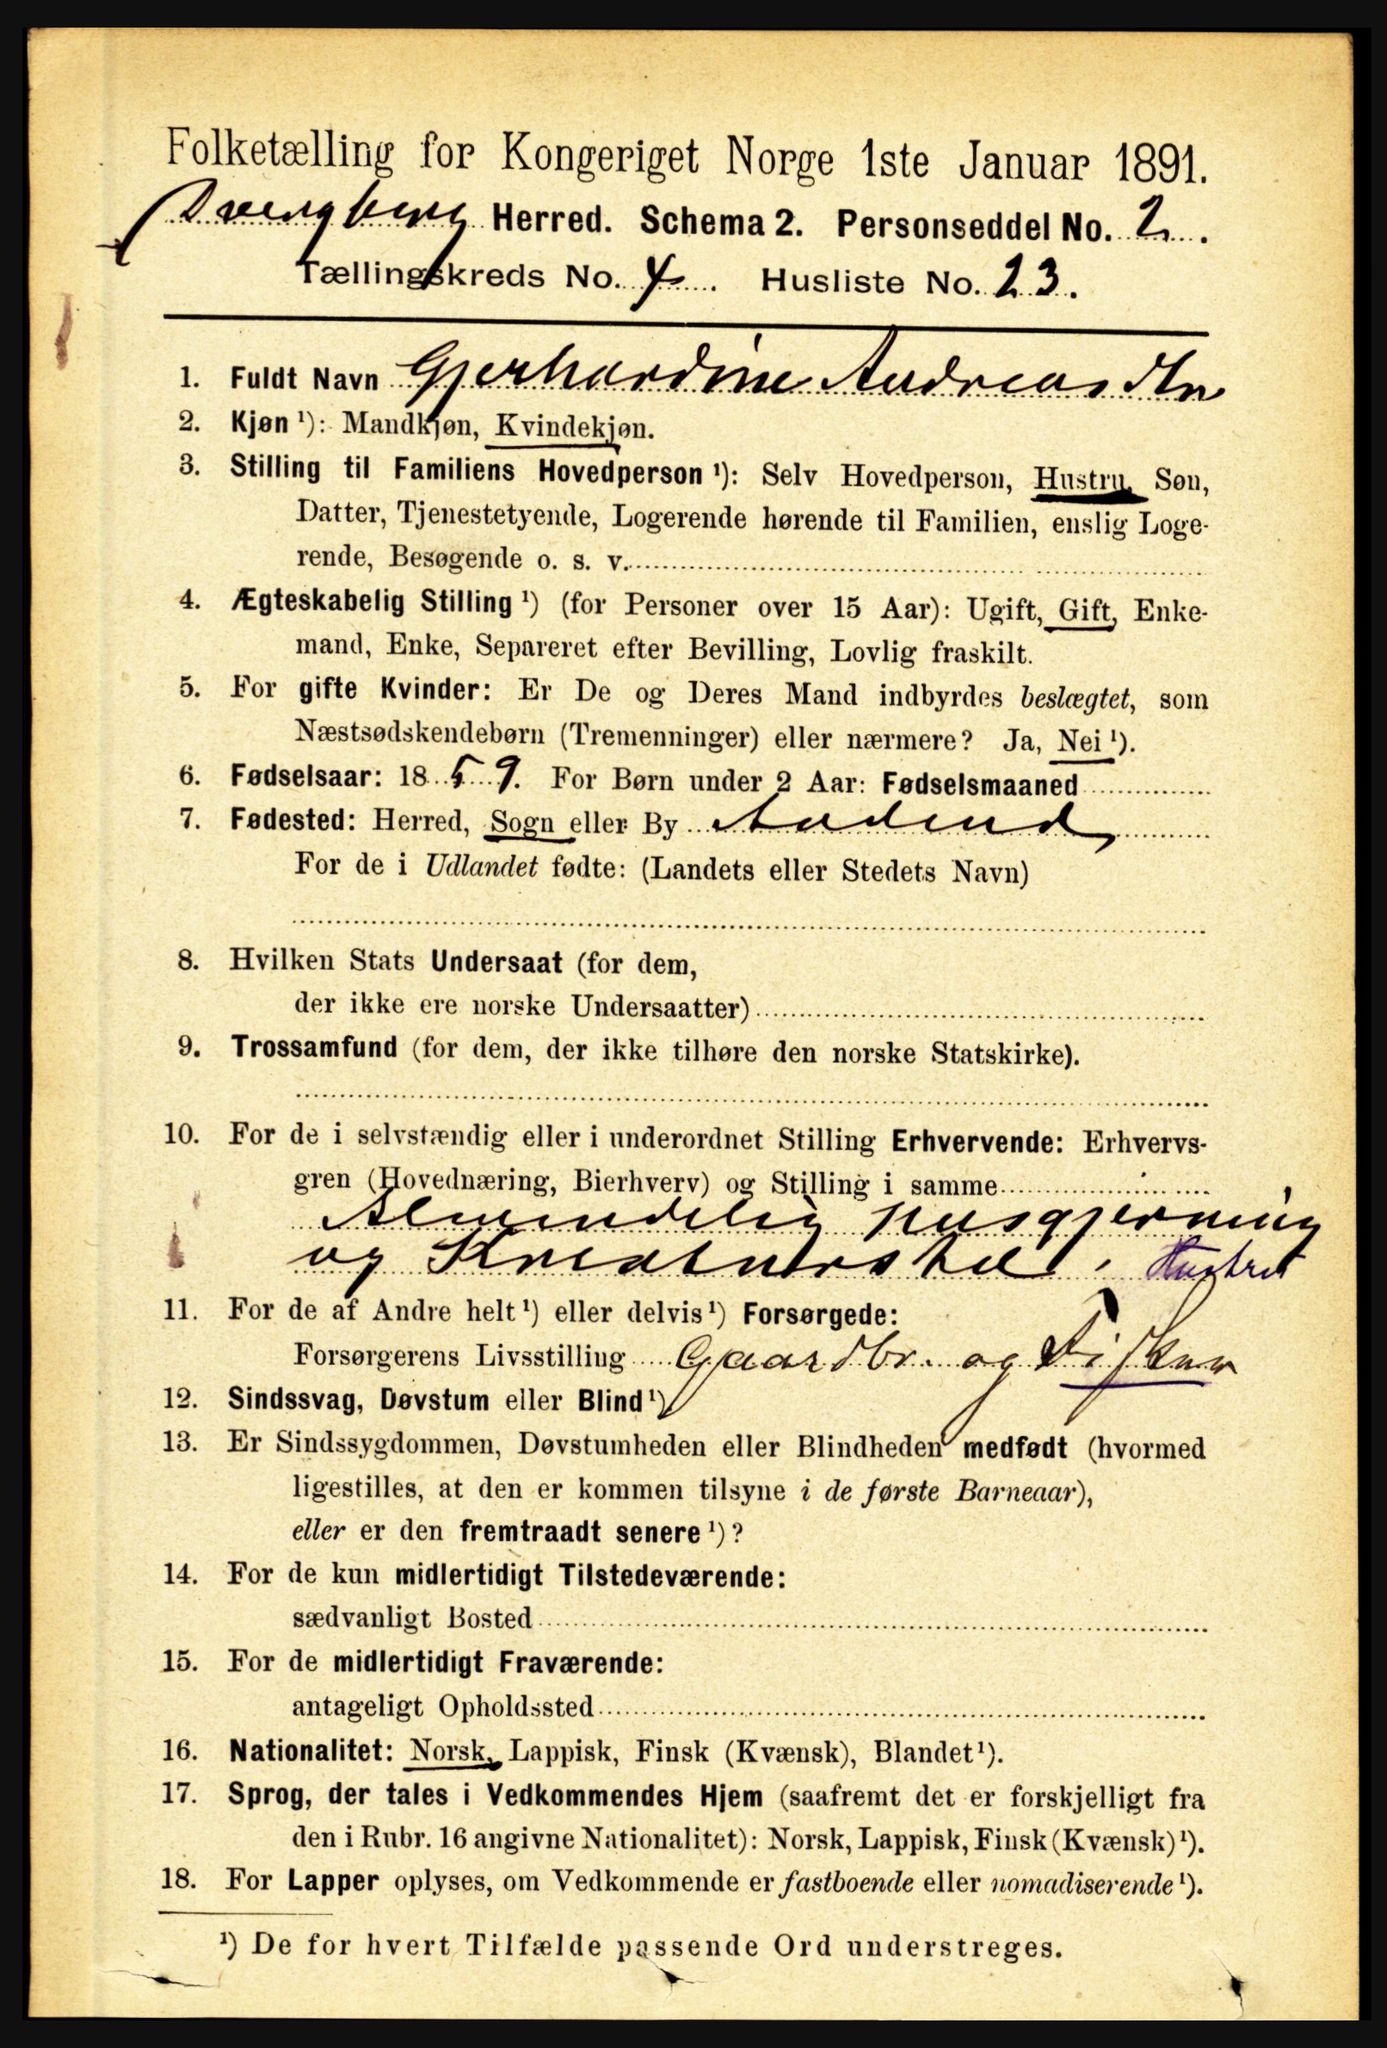 Folketælling for Kongeriget Norge 1ste Januar 1891.
Dvergberg Herred. Schema 2. Personseddel No. 2.
Tællingskreds No. 4. Husliste No. 23.
1. Fuldt Navn Gjerhardine Andreasdtr
2. Kjøn ¹): Mandkjøn, Kvindekjøn.
3. Stilling til Familiens Hovedperson ¹): Selv Hovedperson, Hustru, Søn,
Datter, Tjenestetyende, Logerende hørende til Familien, enslig Loge-
rende, Besøgende o. s. v.
4. Ægteskabelig Stilling ¹) (for Personer over 15 Aar): Ugift, Gift, Enke-
mand, Enke, Separeret efter Bevilling, Lovlig fraskilt.
5. For gifte Kvinder: Er De og Deres Mand indbyrdes beslægtet, som
Næstsødskendebørn (Tremenninger) eller nærmere? Ja, Nei ¹).
6. Fødselsaar: 1859. For Børn under 2 Aar: Fødselsmaaned
7. Fødested: Herred, Sogn eller By
For de i Udlandet fødte: (Landets eller Stedets Navn)
8. Hvilken Stats Undersaat (for dem,
der ikke ere norske Undersaatter)
9. Trossamfund (for dem, der ikke tilhøre den norske Statskirke).
10. For de i selvstændig eller i underordnet Stilling Erhvervende: Erhvervs-
gren (Hovednæring, Bierhverv) og Stilling i samme
Almindelig husgjerning
og Kreaturstel. Hustru
11. For de af Andre helt ¹) eller delvis ¹) Forsørgede:
Forsørgerens Livsstilling Gaardbr. og Fisker
12. Sindssvag, Døvstum eller Blind ¹)
13. Er Sindssygdommen, Døvstumheden eller Blindheden medfødt (hvormed
ligestilles, at den er kommen tilsyne i de første Barneaar),
eller er den fremtraadt senere ¹)?
14. For de kun midlertidigt Tilstedeværende:
sædvanligt Bosted
15. For de midlertidigt Fraværende:
antageligt Opholdssted
16. Nationalitet: Norsk, Lappisk, Finsk (Kvænsk), Blandet ¹).
17. Sprog, der tales i Vedkommendes Hjem (saafremt det er forskjelligt fra
den i Rubr. 16 angivne Nationalitet): Norsk, Lappisk, Finsk (Kvænsk) ¹).
18. For Lapper oplyses, om Vedkommende er fastboende eller nomadiserende ¹).
¹) De for hvert Tilfælde passende Ord understreges.